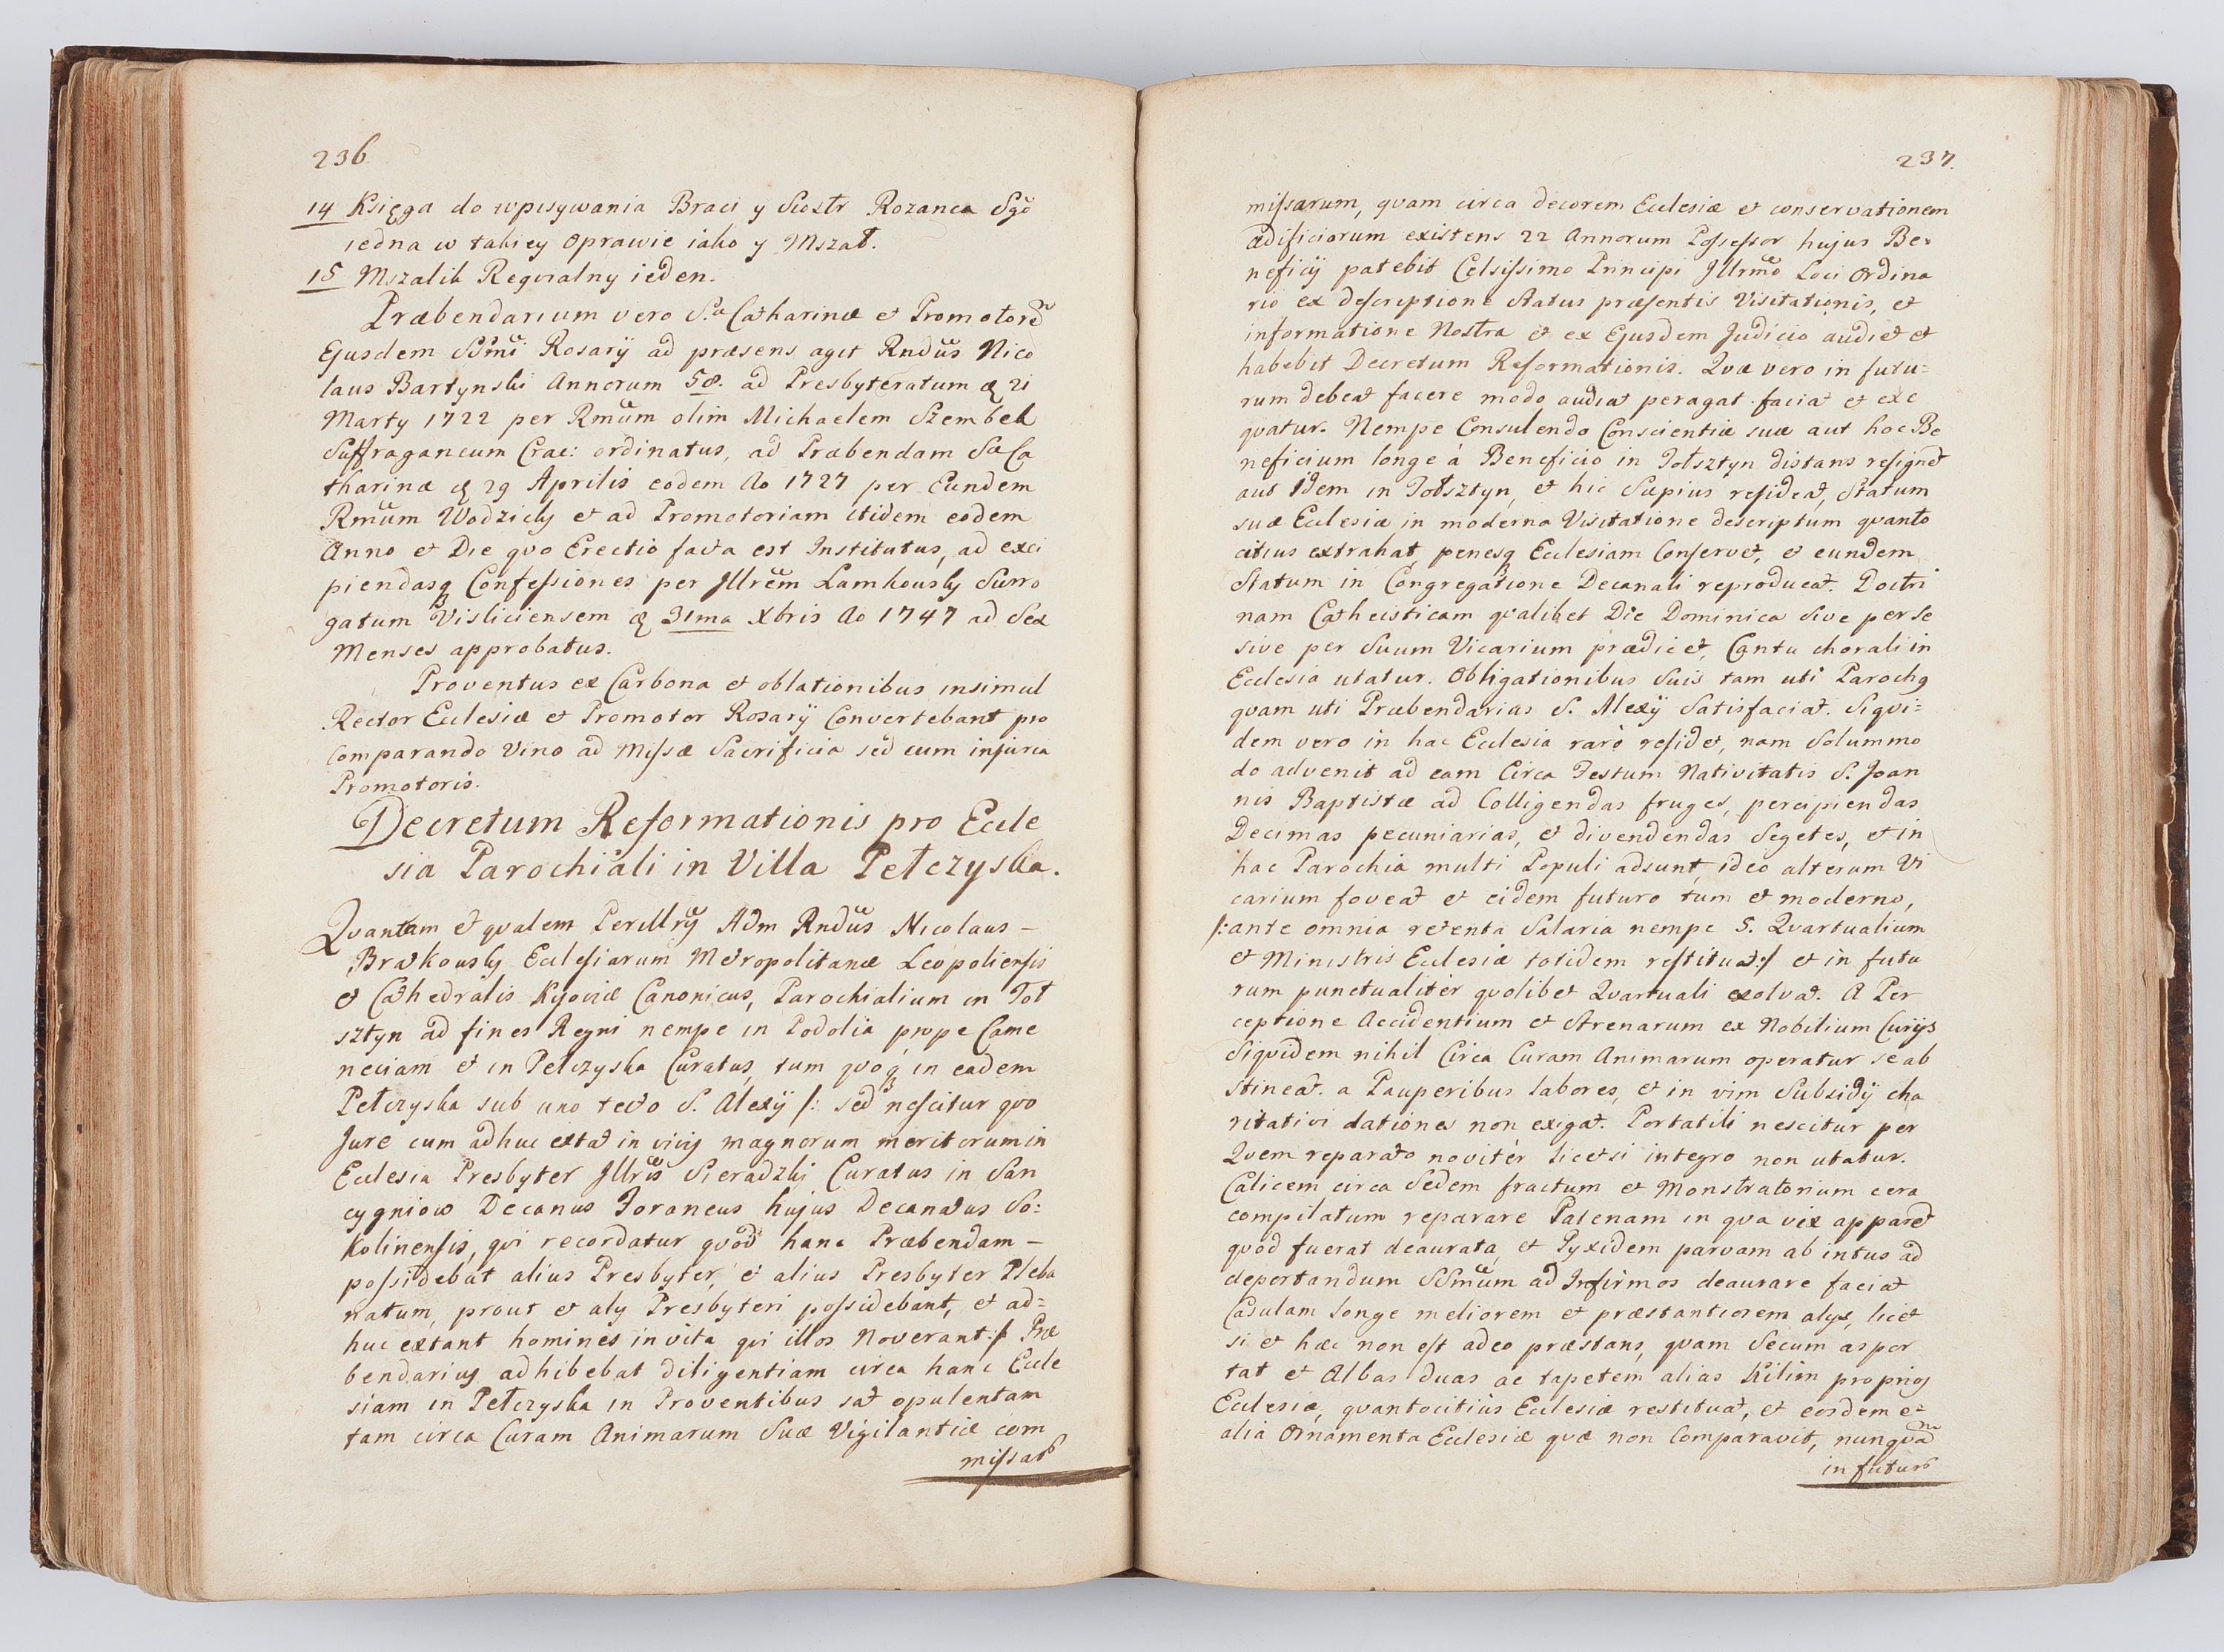 236.
14 Księga do wpisywania Braci y Siostr Rozanca Sgo
iedna w takiey oprawie iako y Mszał.
15 Mszalik Requialny ieden.
Præbendarium vero S.æ Catharinæ et Promotorē
Ejusdem SSmi Rosarÿ ad præsens agit Rndūs Nico
laus Bartynski Annorum 58. ad Presbyteratum 21
Marty 1722 per Rmūm olim Michaelem Szembek
Suffraganeum Crac: ordinatus, ad Præbendam Sæ Ca
tharinæ 29 Aprilis eodem Ao 1727 per Eundem
Rmūm Wodzicky et ad Promotoriam itidem eodem
Anno et Die quo Erectio facta est Institutus, ad exci
piendasq Confessiones per Jllrēm Lamkowsky Surro
gatum Visliciensem 31ma Xbris Ao 1747 ad Sex
Menses approbatus.
Proventus ex Carbona et oblationibus insimul
Rector Ecclesiæ et Promotor Rosarÿ Convertebant pro
Comparando Vino ad Missæ Sacrificia sed cum injuria
Promotoris.
Decretum Reformationis pro Eccle
sia Parochiali in Villa Pełczyska.
Qvantam et qvalem Perillrÿ Adm Rndūs Nicolaus –
Bratkowsky Ecclesiarum Metropolitanæ Leopoliensis
et Cathedralis Kyoviæ Canonicus, Parochialium in Toł
sztyn ad fines Regni nempe in Podolia prope Came
neciam et in Pelczyska Curatus, tum qvoq in eadem
Pełczyska sub uno tecto S. Alexÿ /: sed nescitur qvo
Jure cum adhuc extat in vivis magnorum meritorum in
Ecclesia Presbyter Jllris Sieradzki Curatus in San
cygniow Decanus Foraneus hujus Decanatus So:
kolinensis, qvi recordatur qvod hanc Præbendam –
possidebat alius Presbyter, et alius Presbyter Pleba
natum, prout et aly Presbyteri possidebant, et ad=
huc extant homines in vita qvi illos Noverant :/ Præ
bendarius adhibebat diligentiam circa hanc Eccle
siam in Pełczyska in Proventibus sat opulentam
tam circa Curam Animarum Suæ Vigilantiæ com
missar
237.
missarum, qvam circa decorem Ecclesiæ et conservationem
ædificiorum existens 22 Annorum Possessor hujus Be=
neficÿ patebit Celsissimo Principi Jllrmo Loci Ordina
rio ex descriptione Status præsentis Visitationis, et
informatione Nostra et ex Ejusdem Judicio audiet et
habebit Decretum Reformationis. Qvæ vero in futu=
rum debeat facere modo audiat peragat faciat et exe
qvatur. Nempe Consulendo Conscientiæ suæ aut hoc Be
neficium longe à Beneficio in Tołsztyn distans resignet
aut Idem in Tołsztyn, et hic Sæpius resideat, Statum
suæ Ecclesiæ in moderna Visitatione descriptum qvanto
citius extrahat, penesq Ecclesiam Conservet, et eundem
Statum in Congregatione Decanali reproducat. Doctri
nam Catheisticam qvalibet Die Dominica Sive per Se
sive per Suum Vicarium prædicet, Cantu chorali in
Ecclesia utatur. Obligationibus Suis tam uti Parochg
qvam uti Præbendarius S. Alexÿ Satisfaciat. Siqvi=
dem vero in hac Ecclesia rarò residet, nam Solummo
do advenit ad eam Circa Festum Nativitatis S. Joan
nis Baptistæ ad Colligendas fruges, percipiendas
Decimas pecuniarias, et divendendas Segetes, et in
hac Parochia multi Populi adsunt, ideo alterum Vi
carium foveat et eidem futuro tum et moderno,
/: ante omnia retenta Salaria nempe 5. Qvartualium
et Ministris Ecclesiæ totidem restituat :/ et in futu
rum punctualiter qvolibet Qvartuali exolvat. A Per
ceptione Accidentium et Strenarum ex Nobilium Curÿs
Siqvidem nihil Circa Curam Animarum operatur se ab
stineat. a Pauperibus labores, et in vim Subsidÿ cha
ritativi dationes non exigat. Portatili nescitur per
Qvem reparato noviter licetsi integro non utatur.
Calicem circa Sedem fractum et Monstratorium cera
compilatum reparare Patenam in qva vix apparet
qvod fuerat deaurata, et Pyxidem parvam ab intus ad
deportandum SSmūm ad Infirmos deaurare faciat
Casulam longe meliorem et præstantiorem alys, licet
si et hæc non est adeo præstans, qvam Secum aspor
tat et Albas duas ac tapetem alias Kilim proprios
Ecclesiæ, qvantocitius Ecclesiæ restituat, et eosdem et
alia Ornamenta Ecclesiæ qvæ non Comparavit, nunqvam
in futuro